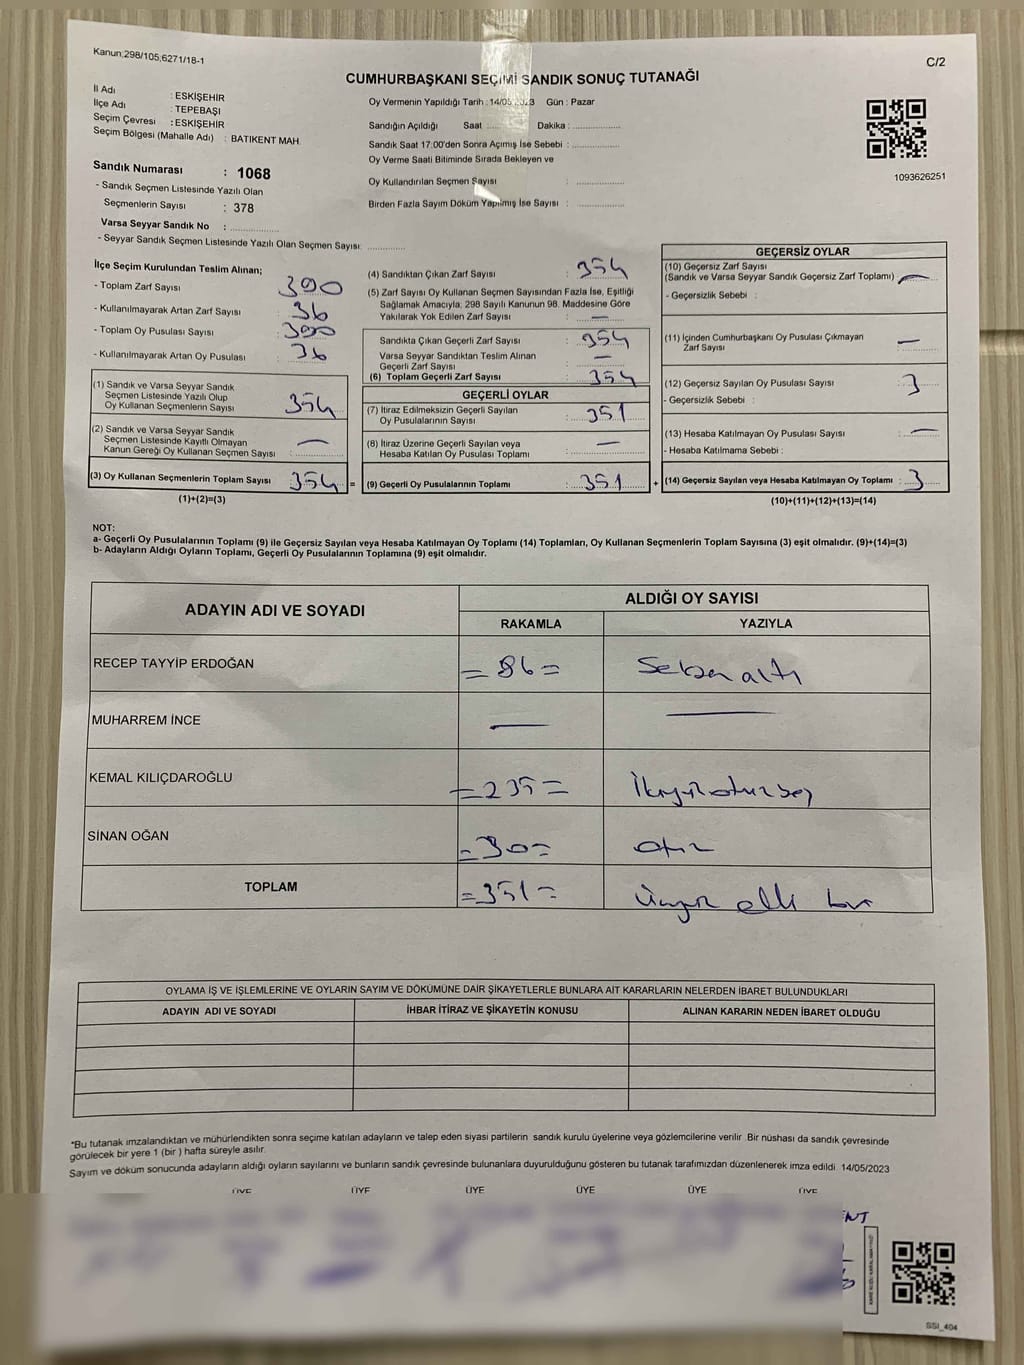 Kanun:298/105;6271/18-1
C/2
CUMHURBAŞKANI SEÇİMİ SANDIK SONUÇ TUTANAĞI
İl Adı : ESKİŞEHİR
İlçe Adı : TEPEBAŞI
Seçim Çevresi : ESKİŞEHİR
Seçim Bölgesi (Mahalle Adı) : BATIKENT MAH.
Oy Vermenin Yapıldığı Tarih : 14/05/2023 Gün : Pazar
Sandığın Açıldığı Saat ........ Dakika : ................
Sandık Saat 17:00'den Sonra Açımış İse Sebebi : ................
Oy Verme Saati Bitiminde Sırada Bekleyen ve
Oy Kullandırılan Seçmen Sayısı : ................
Birden Fazla Sayım Döküm Yapılmış İse Sayısı : ................
1093626251
Sandık Numarası : 1068
- Sandık Seçmen Listesinde Yazılı Olan
Seçmenlerin Sayısı : 378
Varsa Seyyar Sandık No : ................
- Seyyar Sandık Seçmen Listesinde Yazılı Olan Seçmen Sayısı: ............
İlçe Seçim Kurulundan Teslim Alınan;
- Toplam Zarf Sayısı : 390
- Kullanılmayarak Artan Zarf Sayısı : 36
- Toplam Oy Pusulası Sayısı : 390
- Kullanılmayarak Artan Oy Pusulası : 36
(1) Sandık ve Varsa Seyyar Sandık
Seçmen Listesinde Yazılı Olup
Oy Kullanan Seçmenlerin Sayısı : 354
(2) Sandık ve Varsa Seyyar Sandık
Seçmen Listesinde Kayıtlı Olmayan
Kanun Gereği Oy Kullanan Seçmen Sayısı : —
(3) Oy Kullanan Seçmenlerin Toplam Sayısı : 354 =
(1)+(2)=(3)
(4) Sandıktan Çıkan Zarf Sayısı : 354
(5) Zarf Sayısı Oy Kullanan Seçmen Sayısından Fazla İse, Eşitliği
Sağlamak Amacıyla, 298 Sayılı Kanunun 98. Maddesine Göre
Yakılarak Yok Edilen Zarf Sayısı : —
Sandıkta Çıkan Geçerli Zarf Sayısı : 354
Varsa Seyyar Sandıktan Teslim Alınan
Geçerli Zarf Sayısı : —
(6) Toplam Geçerli Zarf Sayısı : 354
GEÇERLİ OYLAR
(7) İtiraz Edilmeksizin Geçerli Sayılan
Oy Pusulalarının Sayısı : 351
(8) İtiraz Üzerine Geçerli Sayılan veya
Hesaba Katılan Oy Pusulası Toplamı : —
(9) Geçerli Oy Pusulalarının Toplamı : 351 +
GEÇERSİZ OYLAR
(10) Geçersiz Zarf Sayısı
(Sandık ve Varsa Seyyar Sandık Geçersiz Zarf Toplamı) : —
- Geçersizlik Sebebi :
(11) İçinden Cumhurbaşkanı Oy Pusulası Çıkmayan
Zarf Sayısı : —
(12) Geçersiz Sayılan Oy Pusulası Sayısı : 3
- Geçersizlik Sebebi :
(13) Hesaba Katılmayan Oy Pusulası Sayısı : —
- Hesaba Katılmama Sebebi :
(14) Geçersiz Sayılan veya Hesaba Katılmayan Oy Toplamı : 3
(10)+(11)+(12)+(13)=(14)
NOT:
a- Geçerli Oy Pusulalarının Toplamı (9) ile Geçersiz Sayılan veya Hesaba Katılmayan Oy Toplamı (14) Toplamları, Oy Kullanan Seçmenlerin Toplam Sayısına (3) eşit olmalıdır. (9)+(14)=(3)
b- Adayların Aldığı Oyların Toplamı, Geçerli Oy Pusulalarının Toplamına (9) eşit olmalıdır.
ADAYIN ADI VE SOYADI ALDIĞI OY SAYISI
RAKAMLA YAZIYLA
RECEP TAYYİP ERDOĞAN = 86 = Seksen altı
MUHARREM İNCE — —
KEMAL KILIÇDAROĞLU = 235 = İkiyüzotuzbeş
SİNAN OĞAN = 30 = otuz
TOPLAM = 351 = Üçyüz elli bir
OYLAMA İŞ VE İŞLEMLERİNE VE OYLARIN SAYIM VE DÖKÜMÜNE DAİR ŞİKAYETLERLE BUNLARA AİT KARARLARIN NELERDEN İBARET BULUNDUKLARI
ADAYIN ADI VE SOYADI İHBAR İTİRAZ VE ŞİKAYETİN KONUSU ALINAN KARARIN NEDEN İBARET OLDUĞU
*Bu tutanak imzalandıktan ve mühürlendikten sonra seçime katılan adayların ve talep eden siyasi partilerin sandık kurulu üyelerine veya gözlemcilerine verilir. Bir nüshası da sandık çevresinde
görülecek bir yere 1 (bir ) hafta süreyle asılır.
Sayım ve döküm sonucunda adayların aldığı oyların sayılarını ve bunların sandık çevresinde bulunanlara duyurulduğunu gösteren bu tutanak tarafımızdan düzenlenerek imza edildi. 14/05/2023
ÜYE ÜYE ÜYE ÜYE ÜYE ÜYE
SSI_404